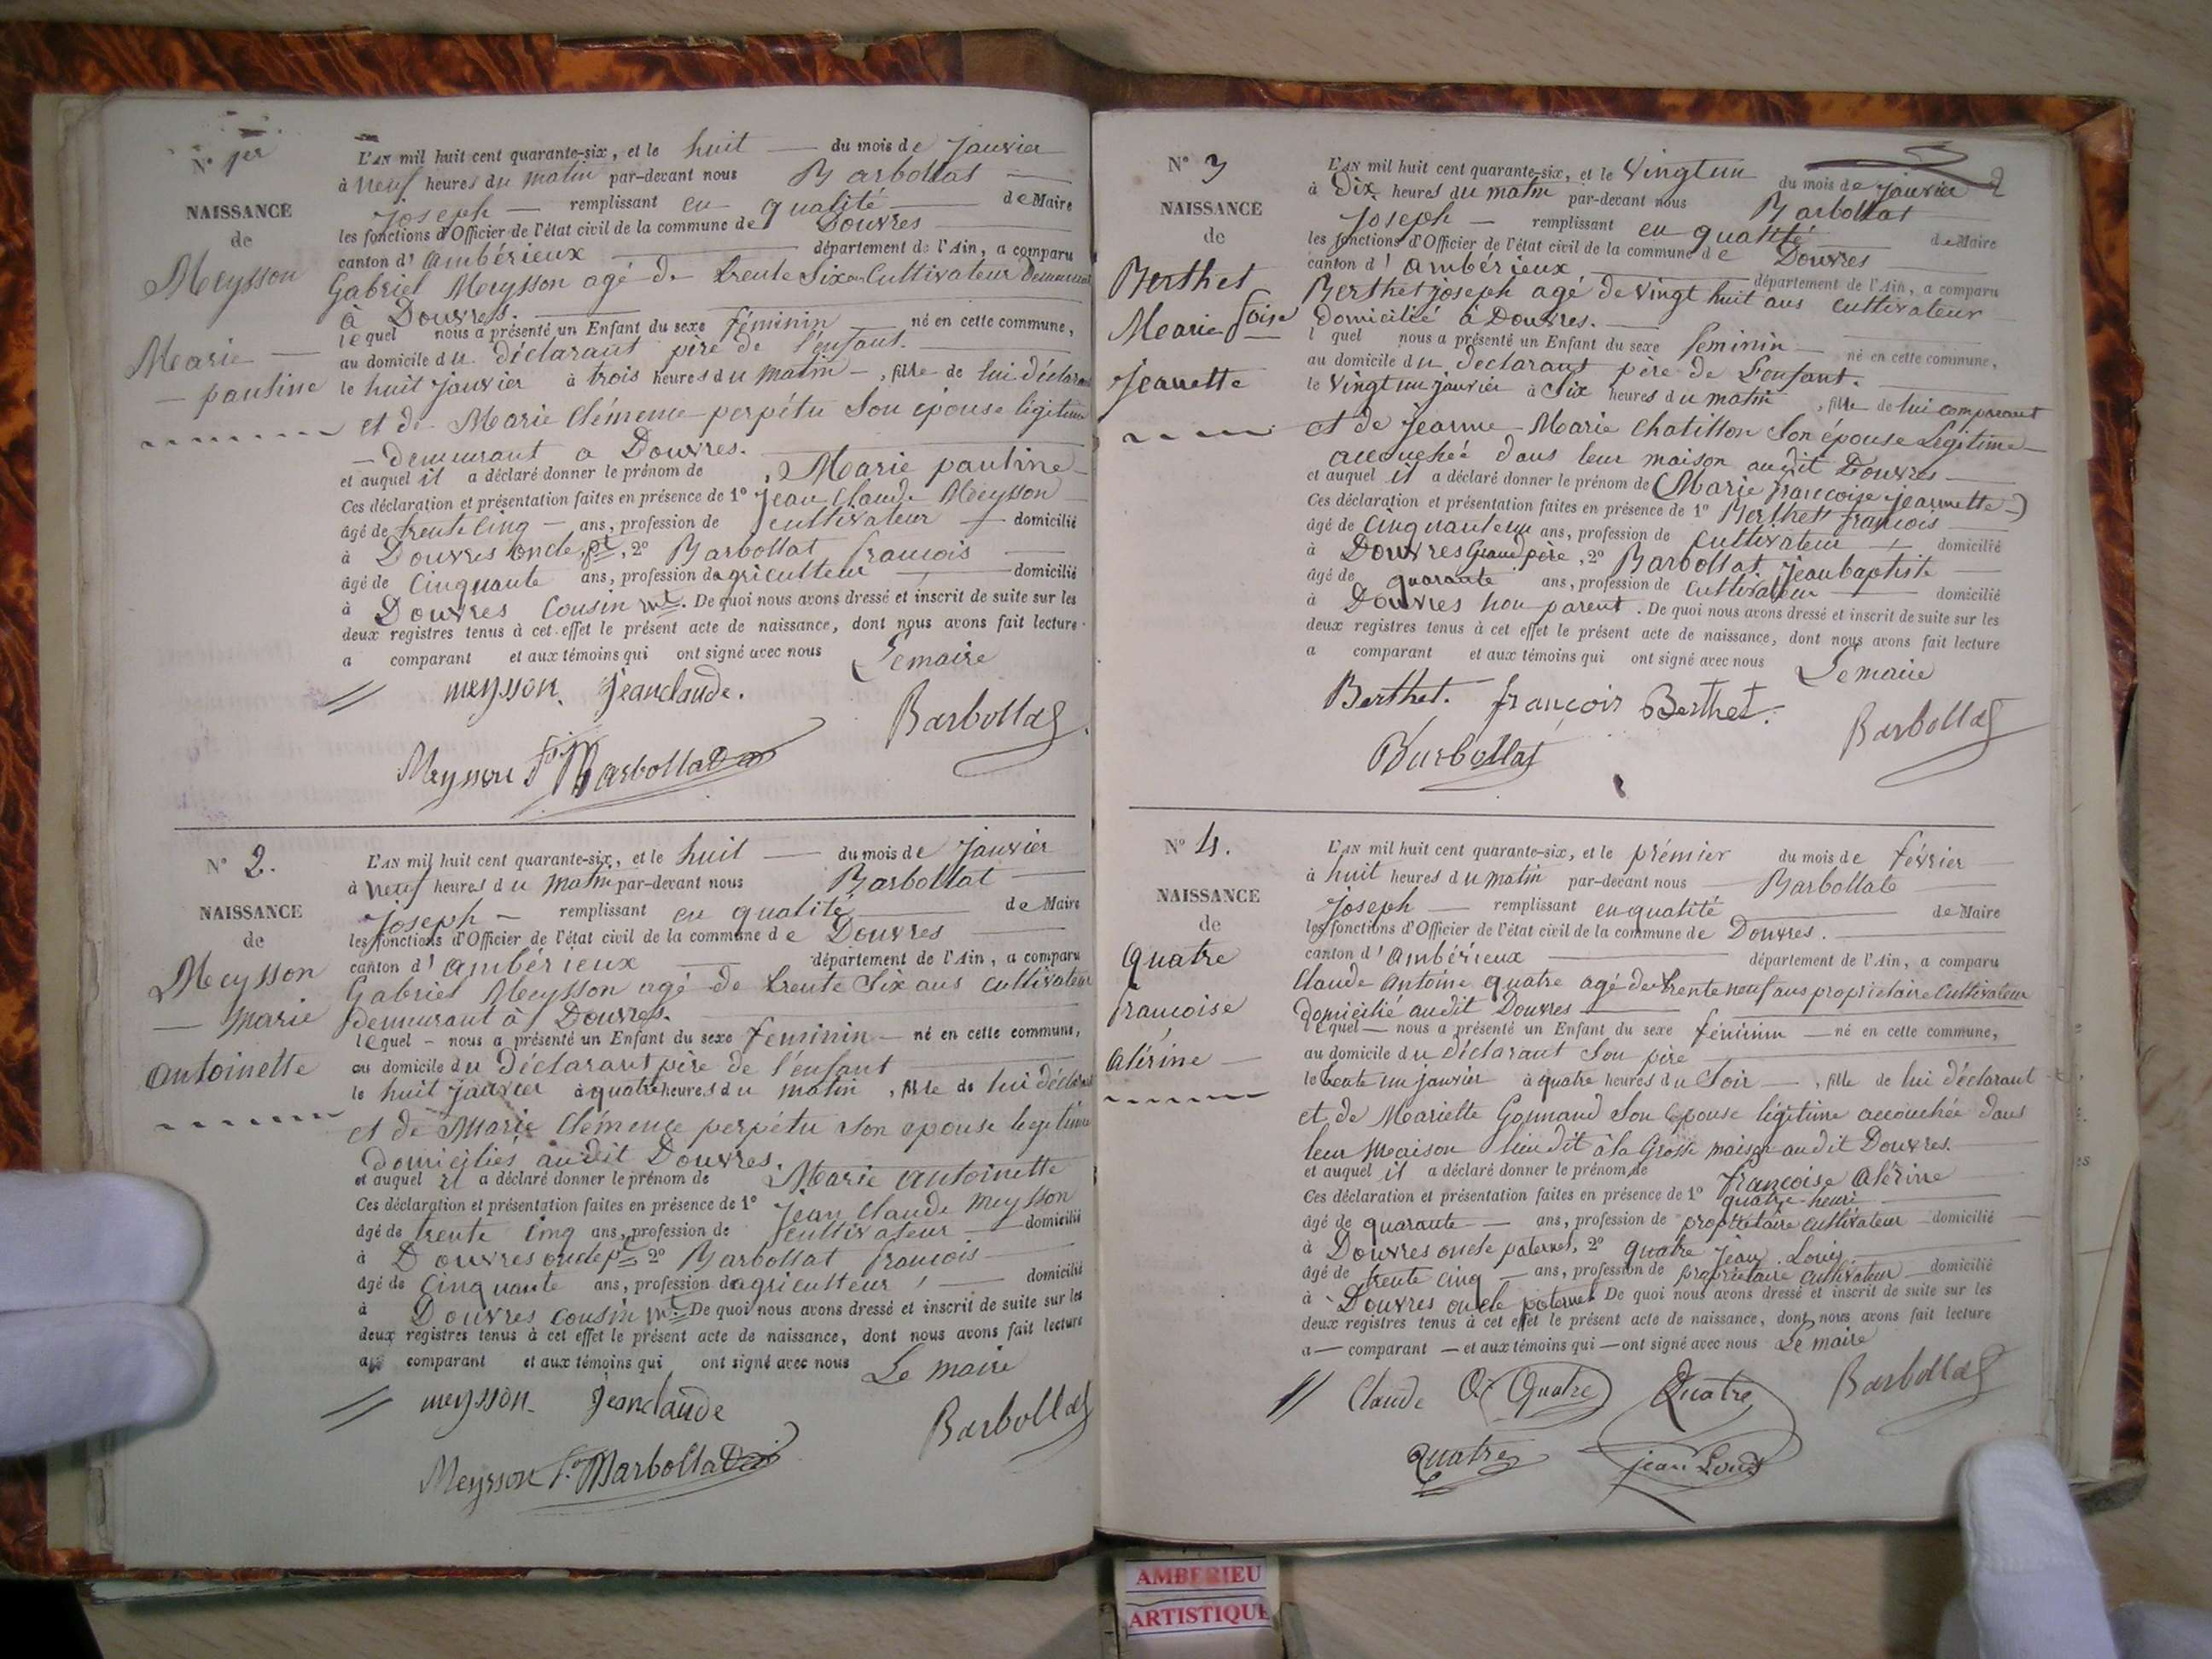 N° 1er
NAISSANCE
de
Meysson
Marie
pauline
L'AN mil huit cent quarante-six, et le huit du mois de janvier
à neuf heures du matin par-devant nous Barbollat
joseph remplissant en qualité de Maire
les fonctions d'Officier de l'état civil de la commune de Douvres
canton d' ambérieux département de l'Ain, a comparu
Gabriel Meysson agé de trente Six ans Cultivateur Demeurant
à Douvres.
lequel nous a présenté un Enfant du sexe féminin né en cette commune,
au domicile du déclarant père de l'enfant.
le huit janvier à trois heures du matin, fille de lui déclarant
et de Marie Clémence perpétu Son épouse légitime
demeurant a Douvres.
et auquel il a déclaré donner le prénom de, Marie pauline
Ces déclaration et présentation faites en présence de 1° jean Claude Meysson
âgé de trente cinq ans, profession de cultivateur domicilié
à Douvres oncle pl, 2° Barbollat francois
âgé de Cinquante ans, profession dagriculteur domicilié
à Douvres Cousin ml. De quoi nous avons dressé et inscrit de suite sur les
deux registres tenus à cet effet le présent acte de naissance, dont nous avons fait lecture
a comparant et aux témoins qui ont signé avec nous Lemaire
meysson. jeanclaude.
Barbollat
Meysson fs Barbollat
N° 2.
NAISSANCE
de
Meysson
marie
antoinette
L'AN mil huit cent quarante-six, et le huit du mois de janvier
à neuf heures du matin par-devant nous Barbollat
joseph remplissant en qualité de Maire
les fonctions d'Officier de l'état civil de la commune de Douvres
canton d' ambérieux département de l'Ain, a comparu
Gabriel Meysson agé de trente Six ans cultivateur
Demeurant à Douvres.
lequel nous a présenté un Enfant du sexe feminin né en cette commune,
au domicile du Déclarant père de l'enfant
le huit janvier à quatre heures du matin, fille de lui déclarant
et de Marie Clémence perpétu son epouse legitime
domiciliés audit Douvres.
et auquel il a déclaré donner le prénom de Marie antoinette
Ces déclaration et présentation faites en présence de 1° jean claude meysson
âgé de trente cinq ans, profession de cultivateur domicilié
à Douvres oncle pl 2° Barbollat francois
âgé de Cinquante ans, profession dagriculteur domicilié
à Douvres cousin ml. De quoi nous avons dressé et inscrit de suite sur les
deux registres tenus à cet effet le présent acte de naissance, dont nous avons fait lecture
au comparant et aux témoins qui ont signé avec nous Le maire
meysson. jeanclaude
Barbollat
Meysson fs Barbollat
2
N° 3
NAISSANCE
de
Berthet
Marie foise
jeanette
L'AN mil huit cent quarante-six, et le Vingt un du mois de janvier
à Dix heures du matin par-devant nous Barbollat
joseph remplissant en qualité de Maire
les fonctions d'Officier de l'état civil de la commune de Douvres
canton d' ambérieux, département de l'Ain, a comparu
Berthet joseph agé de vingt huit ans cultivateur
domicilié à Douvres.
l quel nous a présenté un Enfant du sexe feminin né en cette commune,
au domicile du déclarant père de l'enfant.
le vingt un janvier à Six heures du matin, fille de lui comparant
et de jeanne Marie Chatillon Son épouse Légitime
accouchée dans leur maison audit Douvres
et auquel il a déclaré donner le prénom de (Marie françoise jeannette)
Ces déclaration et présentation faites en présence de 1° Berthet françois
âgé de cinquante un ans, profession de cultivateur domicilié
à Douvres Grand père, 2° Barbollat Jean baptiste
âgé de quarante ans, profession de Cultivateur domicilié
à Douvres non parent. De quoi nous avons dressé et inscrit de suite sur les
deux registres tenus à cet effet le présent acte de naissance, dont nous avons fait lecture
a comparant et aux témoins qui ont signé avec nous Le maire
Berthet. françois Berthet.
Barbollat
Barbollat
N° 4.
NAISSANCE
de
Quatre
francoise
alérine
L'AN mil huit cent quarante-six, et le prémier du mois de février
à huit heures du matin par-devant nous Barbollat
joseph remplissant en qualité de Maire
les fonctions d'Officier de l'état civil de la commune de Douvres.
canton d' ambérieux département de l'Ain, a comparu
Claude antoine quatre agé de trente neuf ans propriétaire Cultivateur
domicilié audit Douvres
lequel nous a présenté un Enfant du sexe féminin né en cette commune,
au domicile du déclarant son père
le trente un janvier à quatre heures du Soir, fille de lui déclarant
et de Mariette Gonnand Son épouse légitime accouchée dans
leur maison lieu dit à la Grosse maison audit Douvres.
et auquel il a déclaré donner le prénom de francoise alérine
Ces déclaration et présentation faites en présence de 1° quatre henri
âgé de quarante ans, profession de propriétaire cultivateur domicilié
à Douvres oncle paternel, 2° quatre Jean Louis
âgé de trente cinq ans, profession de propriétaire cultivateur domicilié
à Douvres oncle paternel De quoi nous avons dressé et inscrit de suite sur les
deux registres tenus à cet effet le présent acte de naissance, dont nous avons fait lecture
a comparant et aux témoins qui ont signé avec nous Le maire
Claude Quatre Quatre
Barbollat
Quatre jean Louis
AMBERIEU
ARTISTIQUE